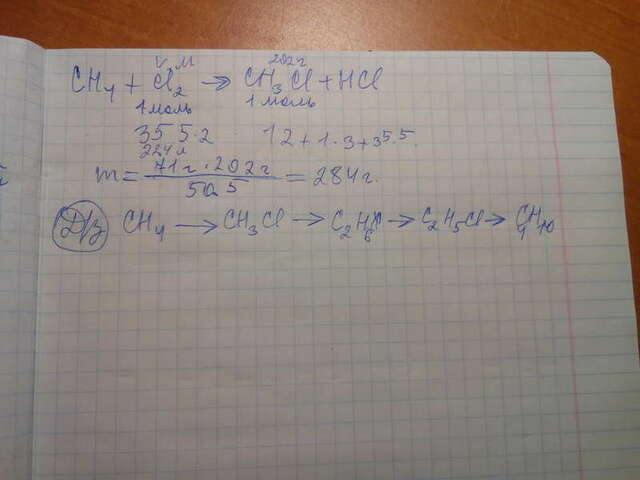 V, M 202 г
CH4 + Cl2 → CH3Cl + HCl
1 моль 1 моль
35 5·2 12 + 1·3 + 35.5.
22,4 л
m = 71 г · 202 г / 50,5 = 284 г.
Д/з CH4 → CH3Cl → C2H6 → C2H5Cl → C4H10